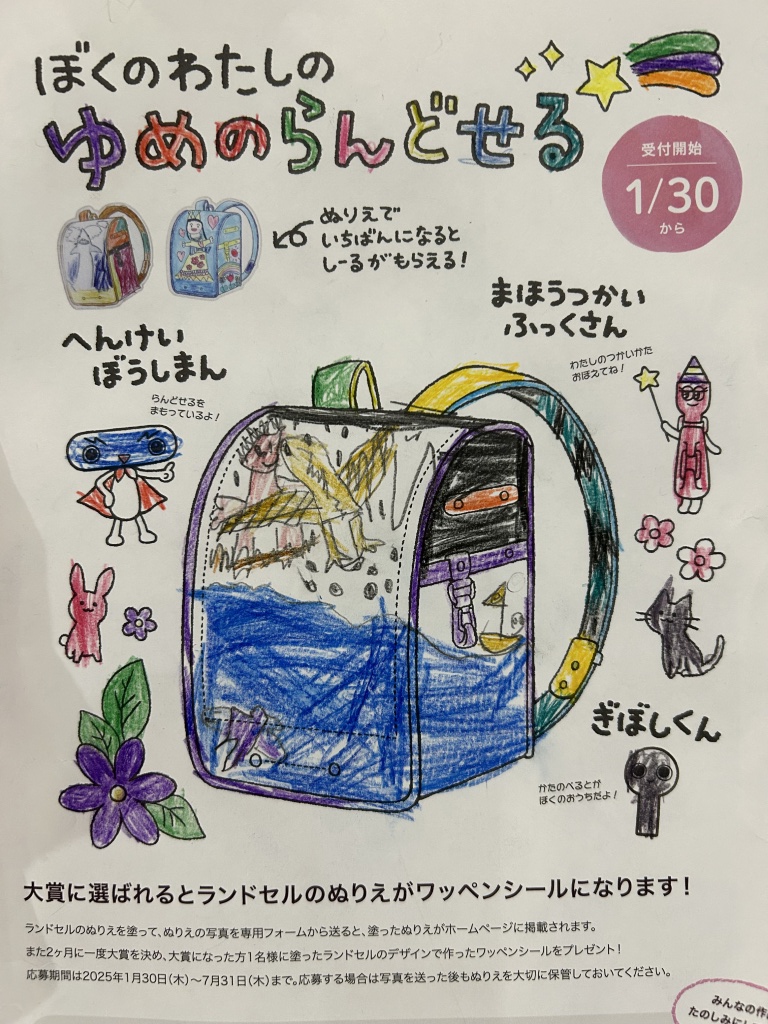 ぼくのわたしの
ゆめのらんどせる
受付開始
1/30
から
ぬりえで
いちばんになると
しーるがもらえる!
まほうつかい
ふっくさん
わたしのつかいかた
おぼえてね!
へんけい
ぼうしまん
らんどせるを
まもっているよ!
ぎぼしくん
かたのべるとが
ぼくのおうちだよ!
大賞に選ばれるとランドセルのぬりえがワッペンシールになります!
ランドセルのぬりえを塗って、ぬりえの写真を専用フォームから送ると、塗ったぬりえがホームページに掲載されます。
また2ヶ月に一度大賞を決め、大賞になった方1名様に塗ったランドセルのデザインで作ったワッペンシールをプレゼント!
応募期間は2025年1月30日(木)〜7月31日(木)まで。応募する場合は写真を送った後もぬりえを大切に保管しておいてください。
みんなの作
たのしみにし